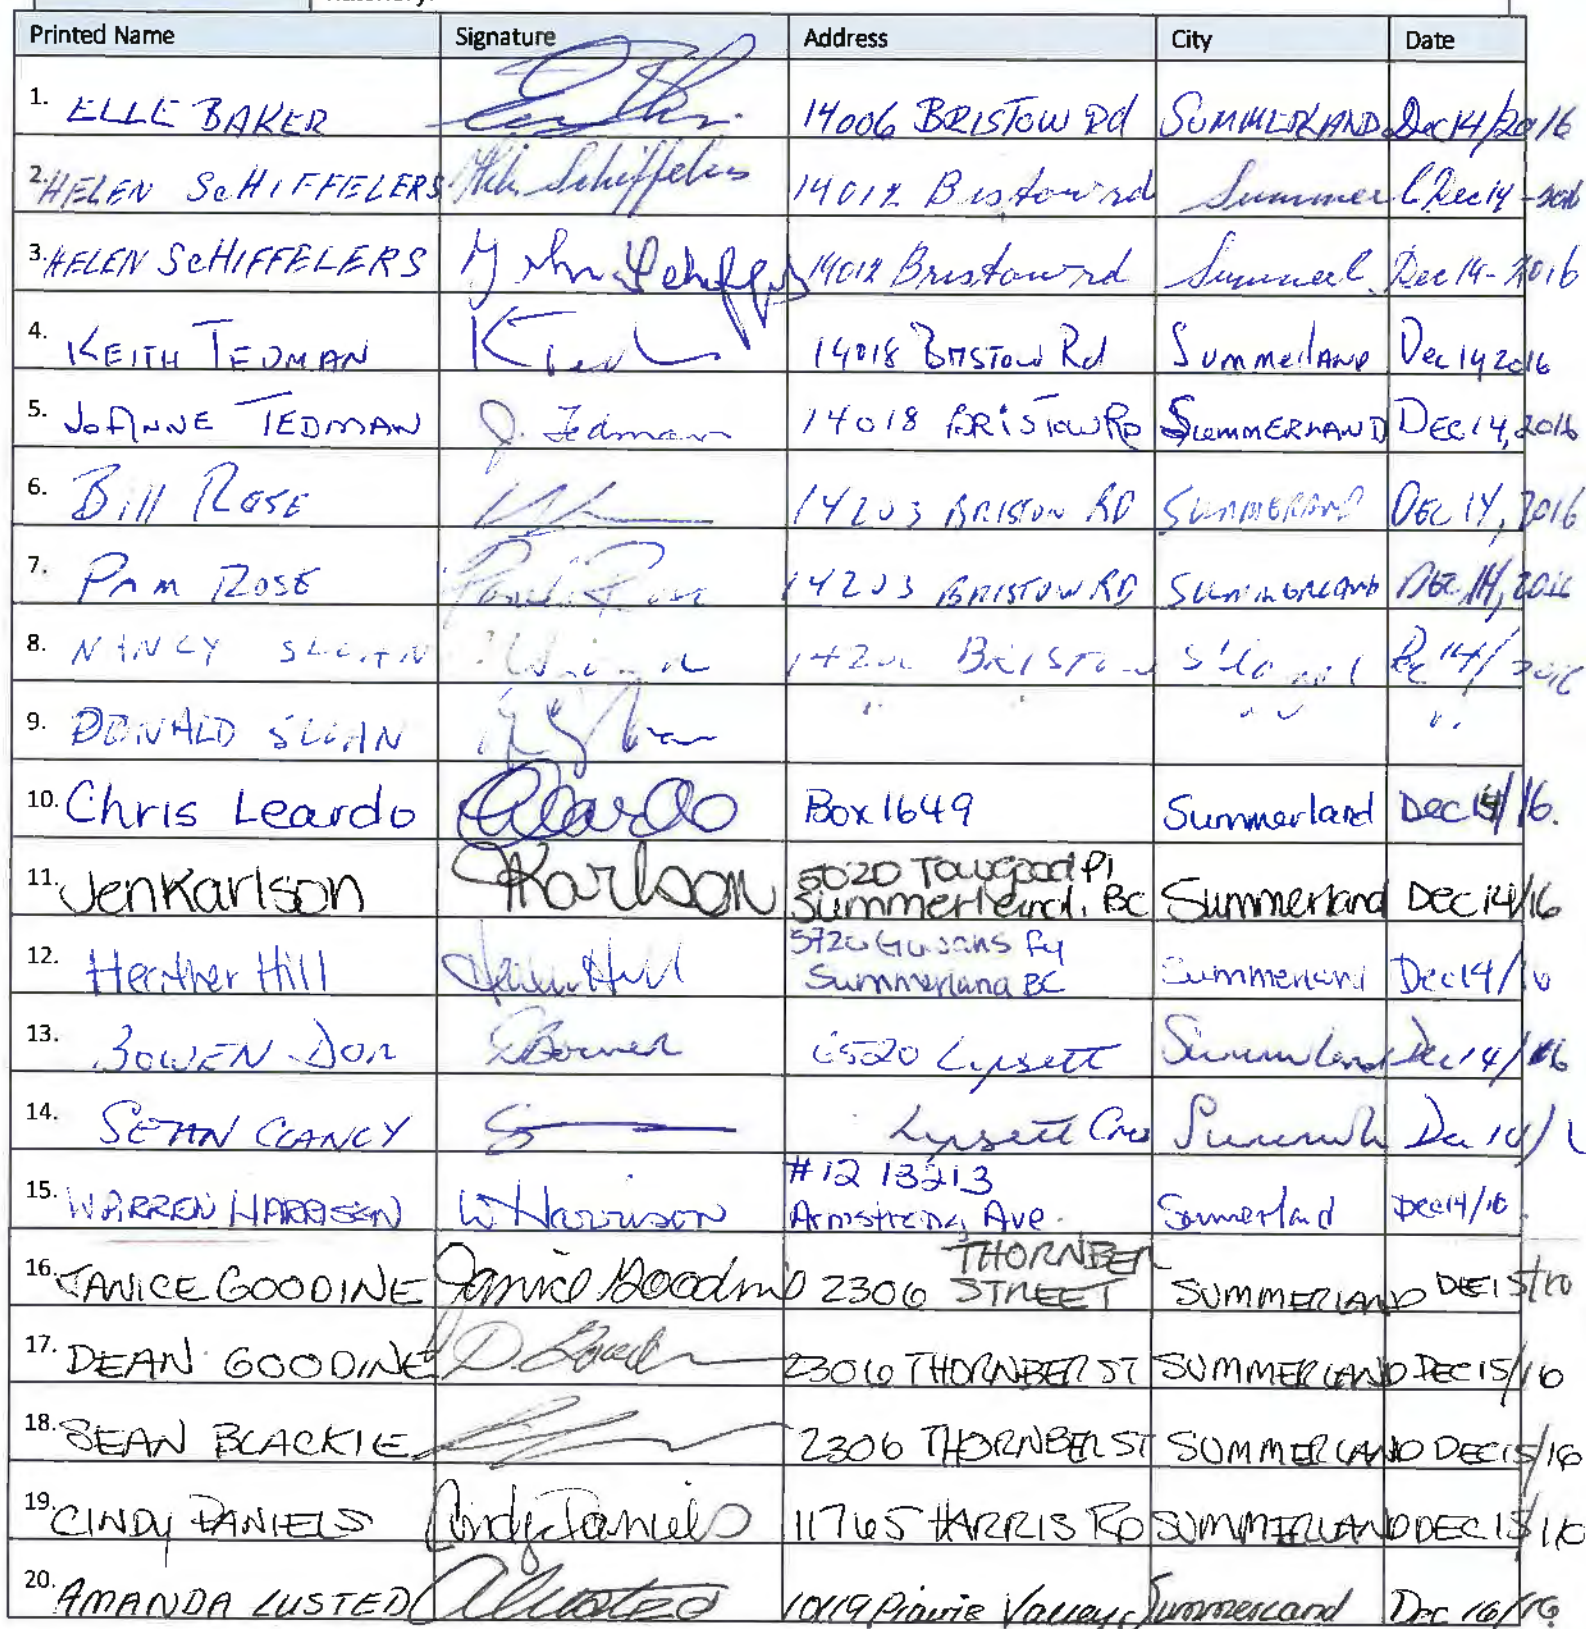 Printed Name Signature Address City Date
1. ELLE BAKER 14006 BRISTOW Rd SUMMERLAND Dec 14/2016
2. HELEN ScHIFFELERS Schiffelers 14012 Bristow rd Summerl Dec 14-2016
3. HELEN ScHIFFELERS John Schiffelers 14012 Bristow rd Summerl. Dec 14-2016
4. KEITH TEDMAN 14018 BRISTOW Rd SummerlAND Dec 14 2016
5. JoANNE TEDMAN J. Tedman 14018 BRISTOW RD SummERLAND DEC 14, 2016
6. Bill ROSE 14203 BRISTOW RD SUMMERLAND DEC 14, 2016
7. PAM ROSE Rose 14203 BRISTOW RD SUMMERLAND DEC 14, 2016
8. NANCY SLOAN BRISTOW Dec 14/2016
9. DONALD SLOAN " " "
10. Chris Leardo CLeardo Box 1649 Summerland Dec 14/16.
11. Jen Karlson JKarlson 5020 Towgood Pl
Summerland, BC Summerland Dec 14/16
12. Heather Hill Heather Hill 5720
Summerland BC Summerland Dec 14/16
13. BOWEN DON DBowen 6520 Lipsett Summerland Dec 14/16
14. SEAN CLANCY Lipsett Cres Dec 14/1
15. WARREN HARRISON W Harrison #12 13213
Armstrong Ave. Summerland Dec 14/16
16. JANICE GOODINE Janice Goodine 2306 THORNBER
STREET SUMMERLAND DEC 15/16
17. DEAN GOODINE D. 2306 THORNBER ST SUMMERLAND DEC 15/16
18. SEAN BLACKIE 2306 THORNBER ST SUMMERLAND DEC 15/16
19. CINDY DANIELS Cindy Daniels 11765 HARRIS RD SUMMERLAND DEC 15/16
20. AMANDA LUSTED ALusted Prairie Valley Summerland Dec 16/16